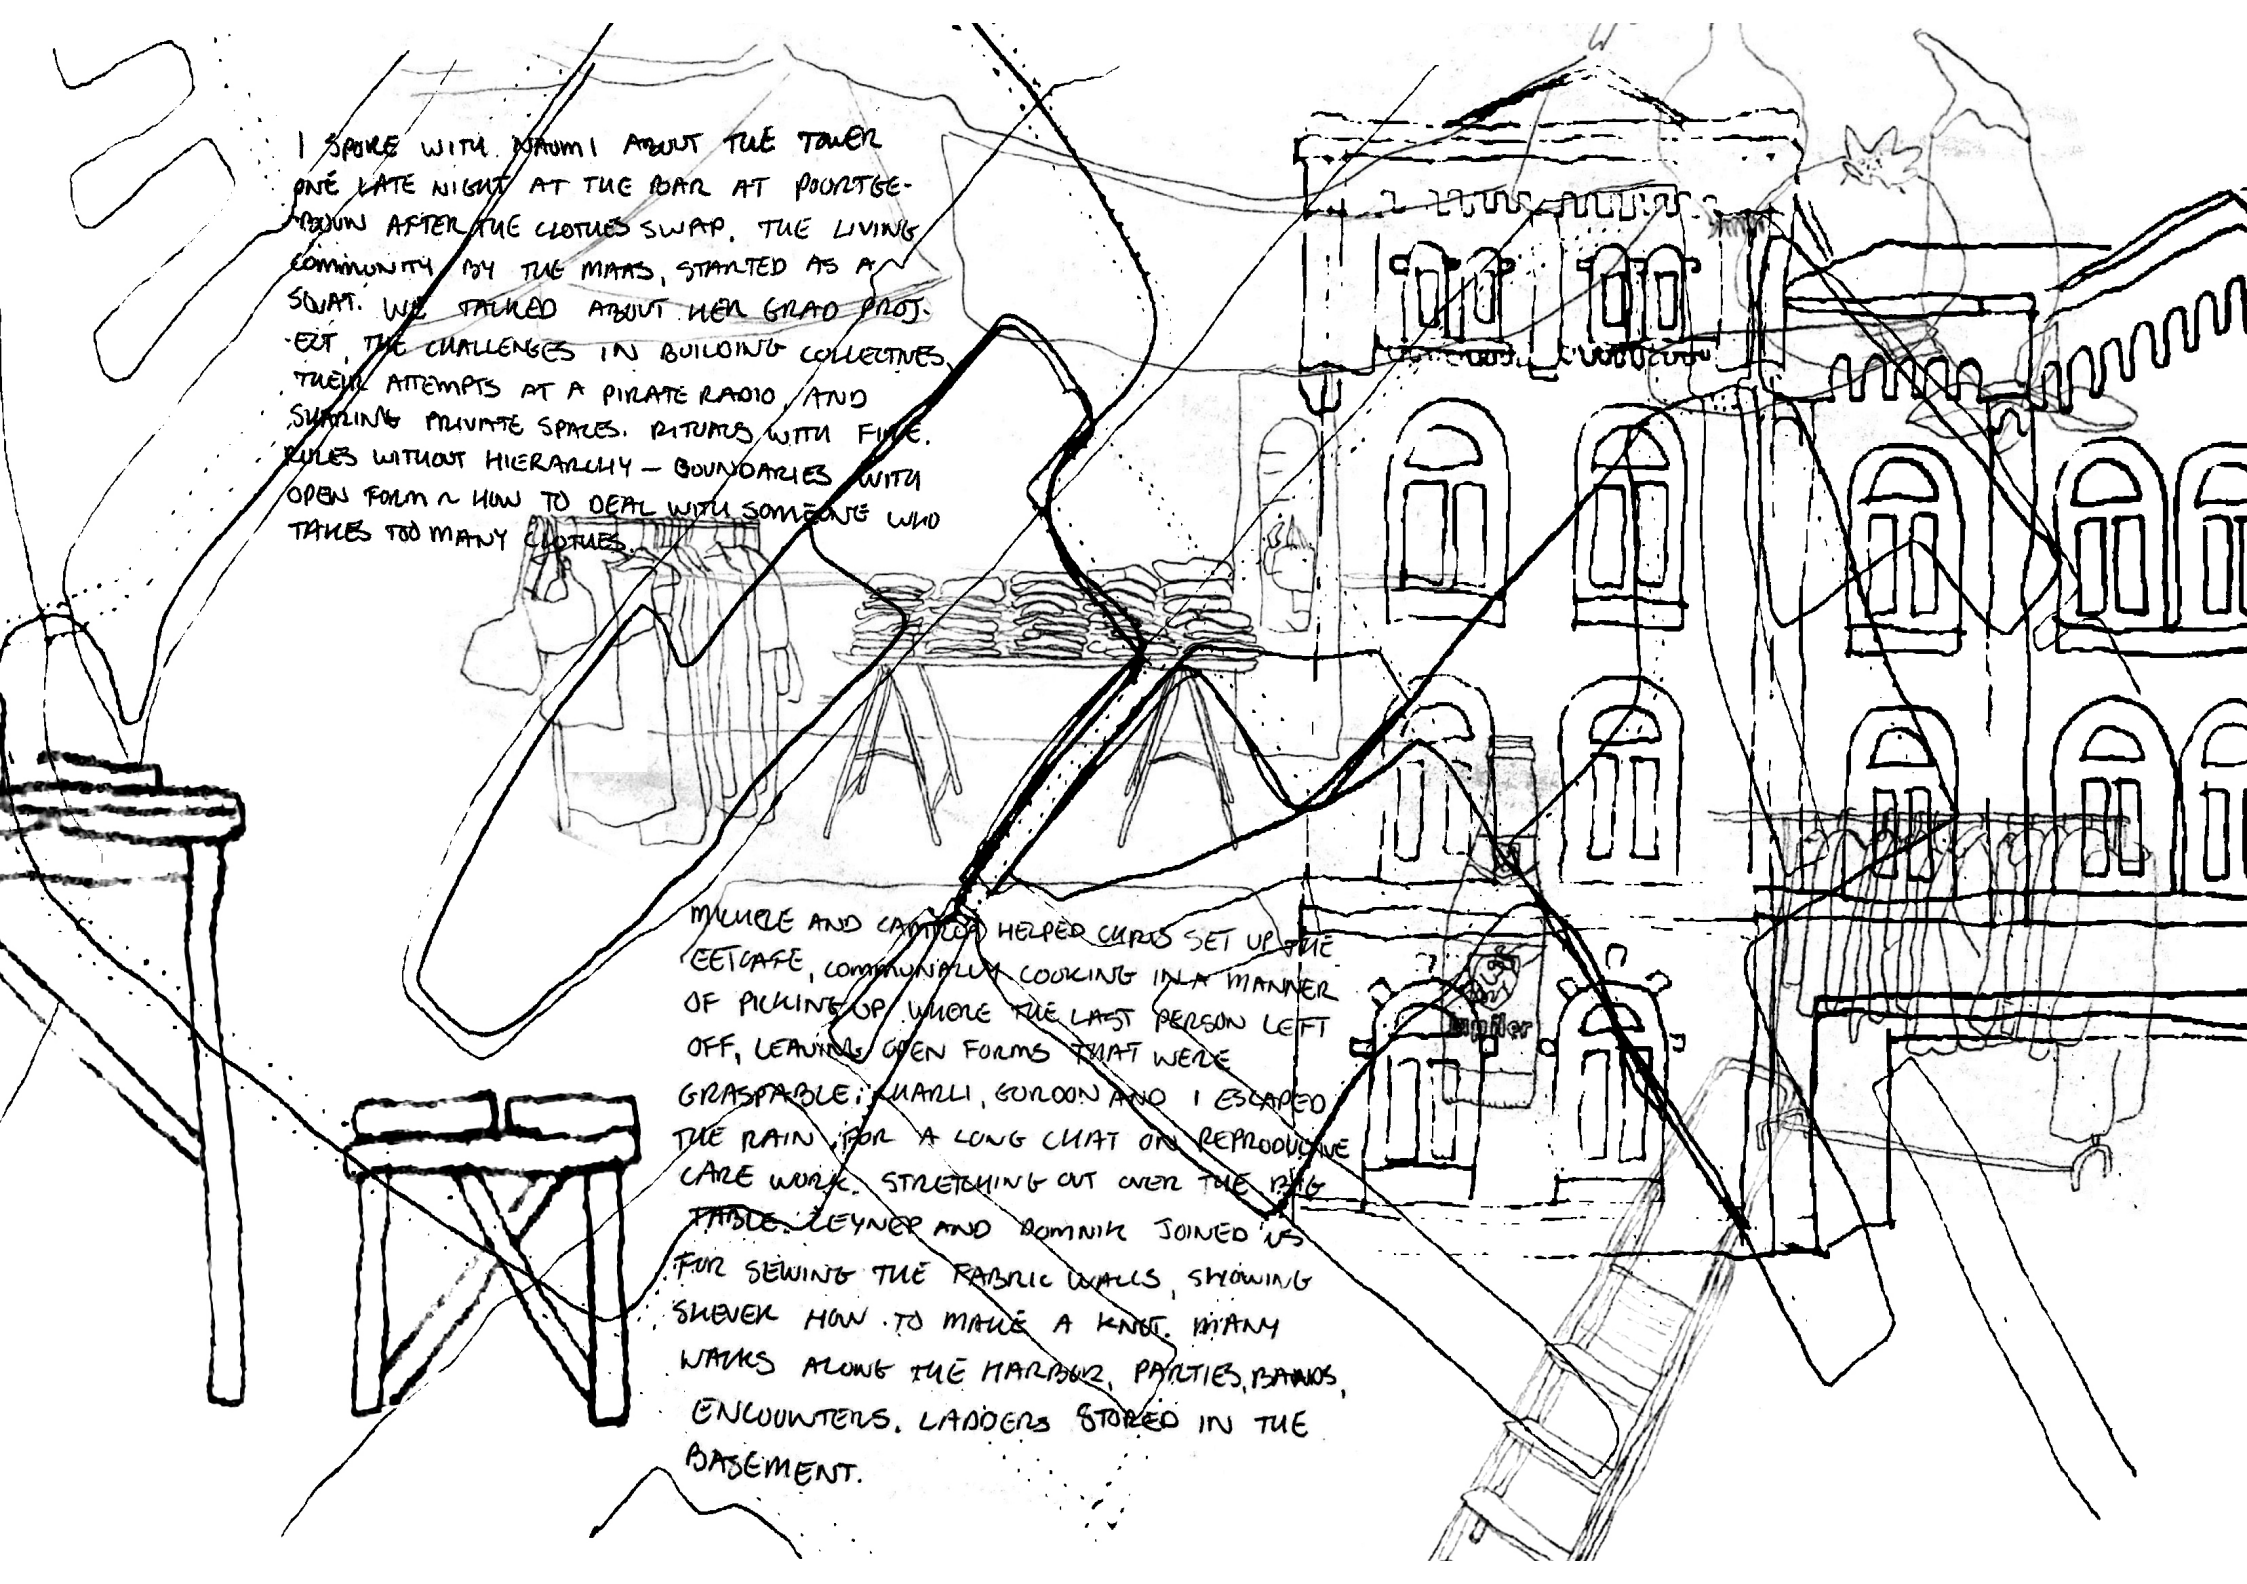 I SPOKE WITH NAOMI ABOUT THE TOWER
ONE LATE NIGHT AT THE BAR AT POORTGE-
BOUW AFTER THE CLOTHES SWAP. THE LIVING
COMMUNITY BY THE MAAS, STARTED AS A
SQUAT. WE TALKED ABOUT HER GRAD PROJ-
ECT, THE CHALLENGES IN BUILDING COLLECTIVES,
THEIR ATTEMPTS AT A PIRATE RADIO, AND
SHARING PRIVATE SPACES. RITUALS WITH FIRE.
RULES WITHOUT HIERARCHY — BOUNDARIES WITH
OPEN FORM ~ HOW TO DEAL WITH SOMEONE WHO
TAKES TOO MANY CLOTHES.
MICHELE AND HELPED CHRIS SET UP THE
EETCAFE, COMMUNALLY COOKING IN A MANNER
OF PICKING UP WHERE THE LAST PERSON LEFT
OFF, LEAVING OPEN FORMS THAT WERE
GRASPABLE; CHARLI, GORDON AND I ESCAPED
THE RAIN FOR A LONG CHAT ON REPRODUCTIVE
CARE WORK. STRETCHING OUT OVER THE BIG
TABLE. ZEYNEP AND DOMNIK JOINED US
FOR SEWING THE FABRIC WALLS, SHOWING
HOW TO MAKE A KNOT. MANY
WALKS ALONG THE HARBOR, PARTIES, BANDS,
ENCOUNTERS. LADDERS STORED IN THE
BASEMENT.
Jupiler